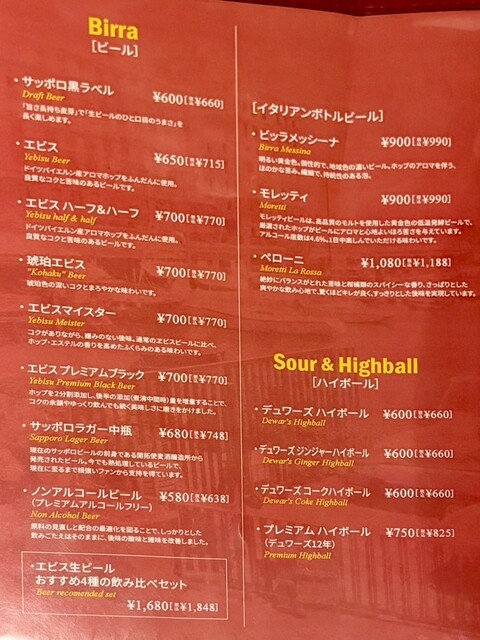 Birra
[ビール]
・サッポロ黒ラベル
Draft Beer
¥600[税込¥660]
「旨さ長持ち麦芽」で「生ビールのひと口目のうまさ」を
長く楽しめます。
・エビス
Yebisu Beer
¥650[税込¥715]
ドイツバイエルン産アロマホップをふんだんに使用。
良質なコクと苦味のあるビールです。
・エビス ハーフ&ハーフ
Yebisu half & half
¥700[税込¥770]
ドイツバイエルン産アロマホップをふんだんに使用。
良質なコクと苦味のあるビールです。
・琥珀エビス
"Kohaku" Beer
¥700[税込¥770]
琥珀色の深いコクとまろやかな味わいです。
・エビスマイスター
Yebisu Meister
¥700[税込¥770]
コクがありながら、嫌みのない後味。通常のエビスビールに比べ、
ホップ・エステルの香りを高めたふくらみのある味わいです。
・エビス プレミアムブラック
Yebisu Premium Black Beer
¥700[税込¥770]
ホップを2分割添加し、後半の添加(煮沸中間時)量を増量することで、
コクの余韻やゆっくり飲んでも続く美味しさに磨きをかけました。
・サッポロラガー中瓶
Sapporo Lager Beer
¥680[税込¥748]
現在のサッポロビールの前身である開拓使麦酒醸造所から
発売されたビール。今でも熱処理しているビールで、
現在に至るまで根強いファンから支持を得ています。
・ノンアルコールビール
(プレミアムアルコールフリー)
Non Alcohol Beer
¥580[税込¥638]
原料の見直しと配合の最適化を図ることで、しっかりとした
飲みごたえはそのままに、後味の酸味と雑味を改善しました。
・エビス生ビール
おすすめ4種の飲み比べセット
Beer recomended set
¥1,680[税込¥1,848]
[イタリアンボトルビール]
・ビッラメッシーナ
Birra Messina
¥900[税込¥990]
明るい黄金色。個性的で、地域色の濃いビール。ホップのアロマを伴う、
ほのかな苦み。繊細で、持続性のある泡。
・モレッティ
Moretti
¥900[税込¥990]
モレッティビールは、高品質のモルトを使用した黄金色の低温発酵ビールで、
厳選されたホップがビールにアロマと心地よいほろ苦さを与えています。
アルコール度数は4.6%。1日中楽しんでいただける味わいです。
・ペローニ
Moretti La Rossa
¥1,080[税込¥1,188]
絶妙にバランスがとれた苦味と柑橘類のスパイシーな香り、さっぱりとした
爽やかな飲み心地で、驚くほどキレが良く、すっきりとした後味を実現しています。
Sour & Highball
[ハイボール]
・デュワーズ ハイボール
Dewar's Highball
¥600[税込¥660]
・デュワーズ ジンジャーハイボール
Dewar's Ginger Highball
¥600[税込¥660]
・デュワーズ コークハイボール
Dewar's Coke Highball
¥600[税込¥660]
・プレミアム ハイボール
(デュワーズ12年)
Premium Highball
¥750[税込¥825]